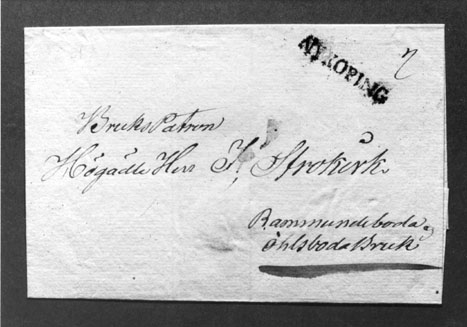 NYKÖPING
2
Bruks Patron
Högädle Herr J. Strokirk
Rammundeboda
Ohlsboda Bruk